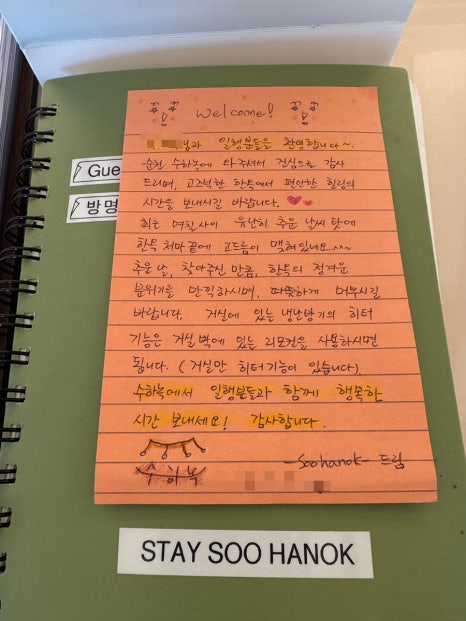 Welcome!
님과 일행분들을 환영합니다~.
Gue
순천 수하녹에 와 주셔서 진심으로 감사
드리며, 고즈넉한 한옥에서 편안한 힐링의
방명
시간을 보내시길 바랍니다.
최근 며칠 사이 유난히 추운 날씨 탓에
한옥 처마 끝에 고드름이 맺혀있네요^^
추운 날, 찾아주신 만큼, 한옥의 정겨운
분위기를 만끽하시며, 따뜻하게 머무시길
바랍니다. 거실에 있는 냉난방기의 히터
기능은 거실 벽에 있는 리모컨을 사용하시면
됩니다. (거실만 히터기능이 있습니다)
수하녹에서 일행분들과 함께 행복한
시간 보내세요! 감사합니다.
-Soohanok- 드림
수하녹
STAY SOO HANOK